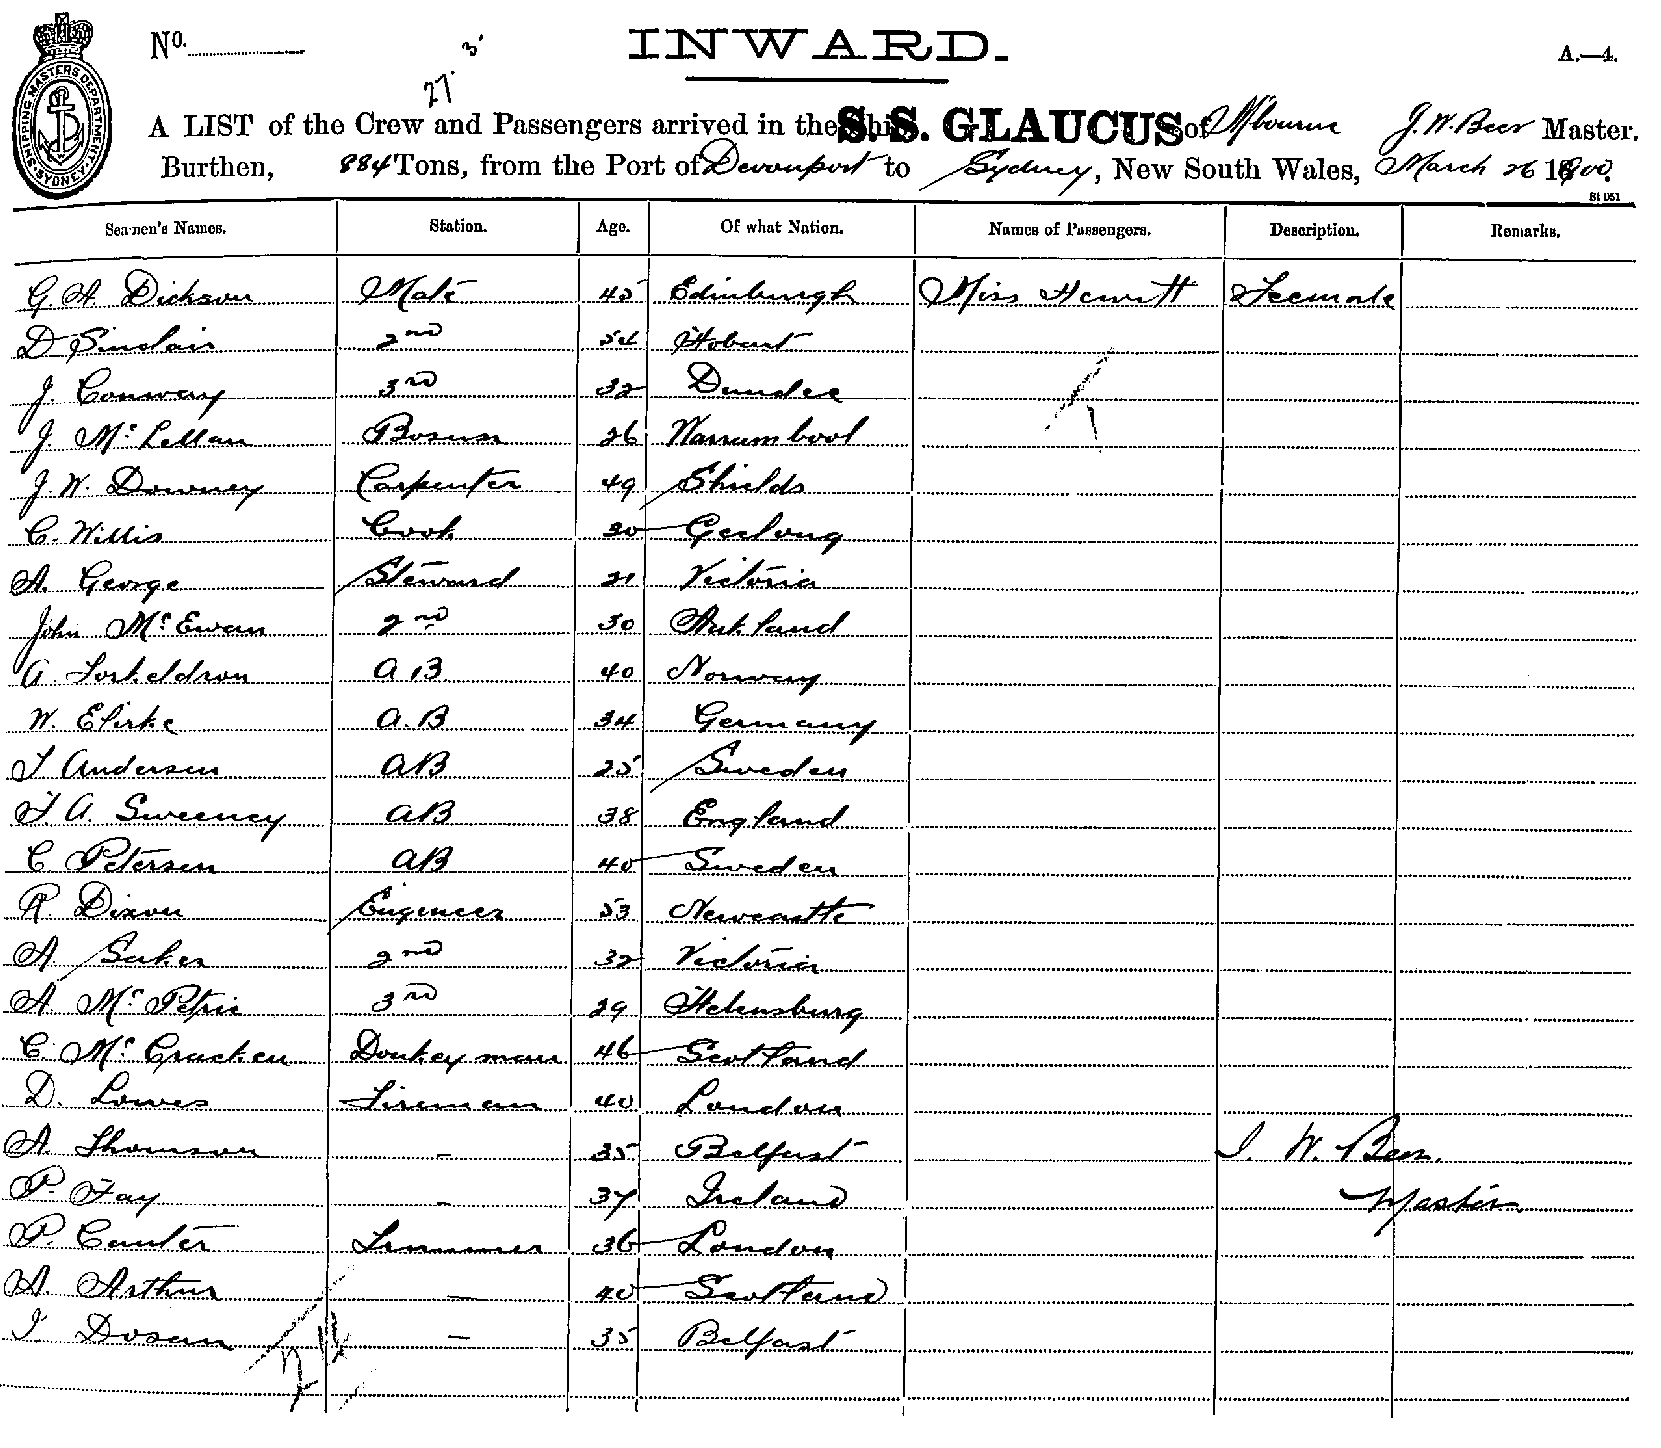 No. 27. 3. INWARD. A.—4.
SHIPPING MASTERS DEPARTMENT. SYDNEY.
A LIST of the Crew and Passengers arrived in the Ship S.S. GLAUCUS of Mlbourne J. W. Beer Master.
Burthen, 884 Tons, from the Port of Devonport to Sydney, New South Wales, March 26 1900.
St D51
Seamen's Names. Station. Age. Of what Nation. Names of Passengers. Description. Remarks.
G A Dickson Mate 45 Edinburgh Miss Hewitt Feemale
D Sinclair 2nd 54 Hobart
J. Conway 3rd 32 Dundee
J. Mc Lellan Bosun 26 Warrumbool
J. W. Downey Carpenter 49 Shields
C. Willis Cook 30 Geelong
A. George Steward 21 Victoria
John Mc Ewan 2nd 30 Aukland
A Torkeldron A B 40 Norway
W. Elirke A. B 34 Germany
T Andersen AB 25 Sweden
T. A. Sweeney AB 38 England
C Petersen AB 40 Sweden
R Dixon Engeneer 53 Newcastle
A. Suker 2nd 32 Victoria
A. Mc Petrie 3rd 29 Helensburg
C. Mc Cracken Donkeyman 46 Scotland
D. Lowes Fireman 40 London
A. Thomson - 35 Belfast J. W. Beer.
P. Fay - 37 Ireland Master
P. Canter Trimmer 36 London
A. Arthur - 40 Scotland
J Dosan - 35 Belfast